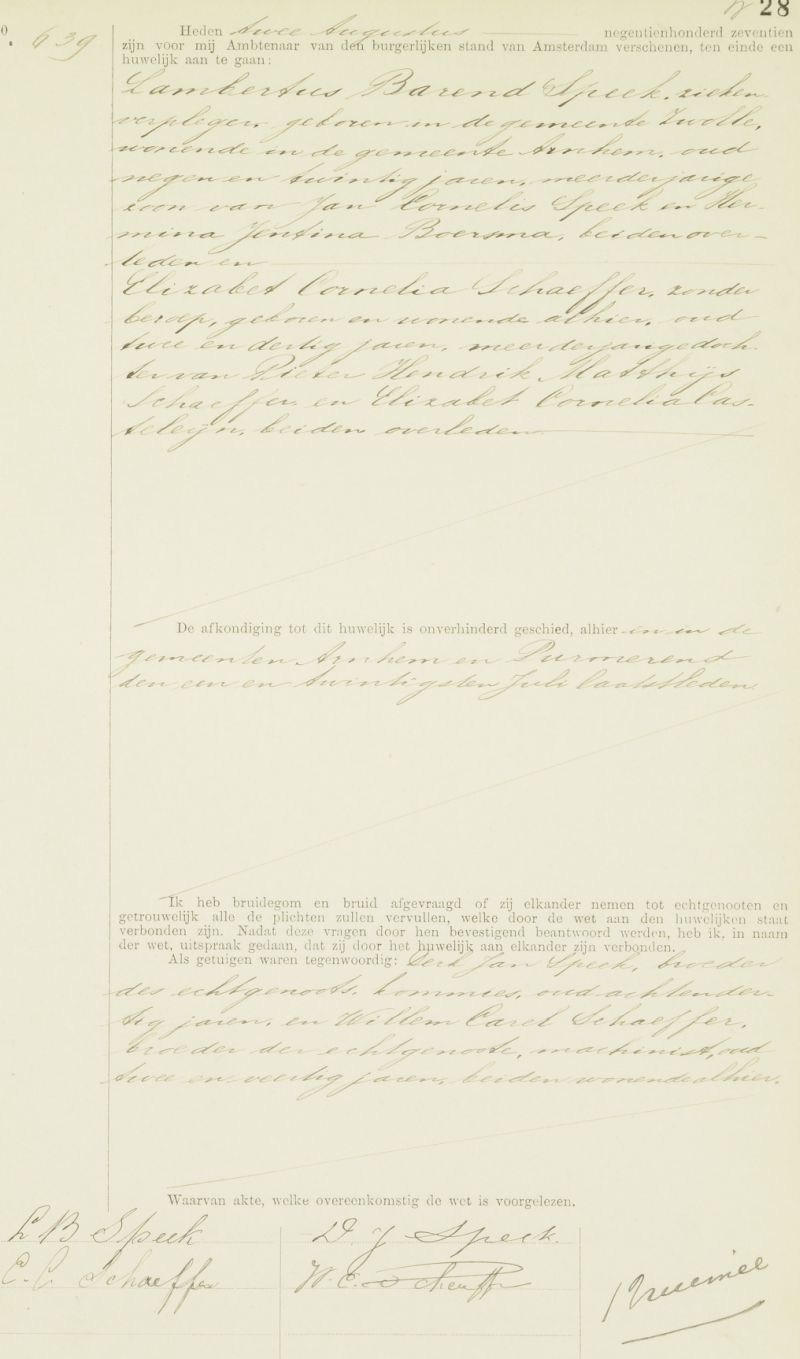 28
639
Heden twee Augustus negentienhonderd zeventien
zijn voor mij Ambtenaar van den burgerlijken stand van Amsterdam verschenen, ten einde een
huwelijk aan te gaan:
Lambertus Barend Speek, zieken
verpleger, geboren in de gemeente Zwolle,
wonende in de gemeente Arnhem, oud
negen en twintig jaren, meerderjarige
zoon van Jan Cornelis Speek en Her-
mina Jentina Boersma, beiden over-
leden en
Elizabet Cornelia Schaeffer, zonder
beroep, geboren en wonende alhier, oud
twee en dertig jaren, meerderjarige doch-
ter van Pieter Hendrik Matthijs
Schaeffer en Elizabet Cornelia Cas-
teleijn, beiden overleden
De afkondiging tot dit huwelijk is onverhinderd geschied, alhier en in de
gemeenten Arnhem en Purmerend
den een en twintigsten Juli laatstleden
Ik heb bruidegom en bruid afgevraagd of zij elkander nemen tot echtgenooten en
getrouwelijk alle de plichten zullen vervullen, welke door de wet aan den huwelijken staat
verbonden zijn. Nadat deze vragen door hen bevestigend beantwoord werden, heb ik, in naam
der wet, uitspraak gedaan, dat zij door het huwelijk aan elkander zijn verbonden.
Als getuigen waren tegenwoordig: Jan Speek, broeder
des echtgenoots, kommies, oud acht en der-
tig jaren, en Willem Carel Schaeffer,
broeder der echtgenoote, machinist, oud
twee en veertig jaren, beiden wonende alhier.
Waarvan akte, welke overeenkomstig de wet is voorgelezen.
L B Speek
D. J Speek.
E. C. Schaeffer
W. C. Schaeffer